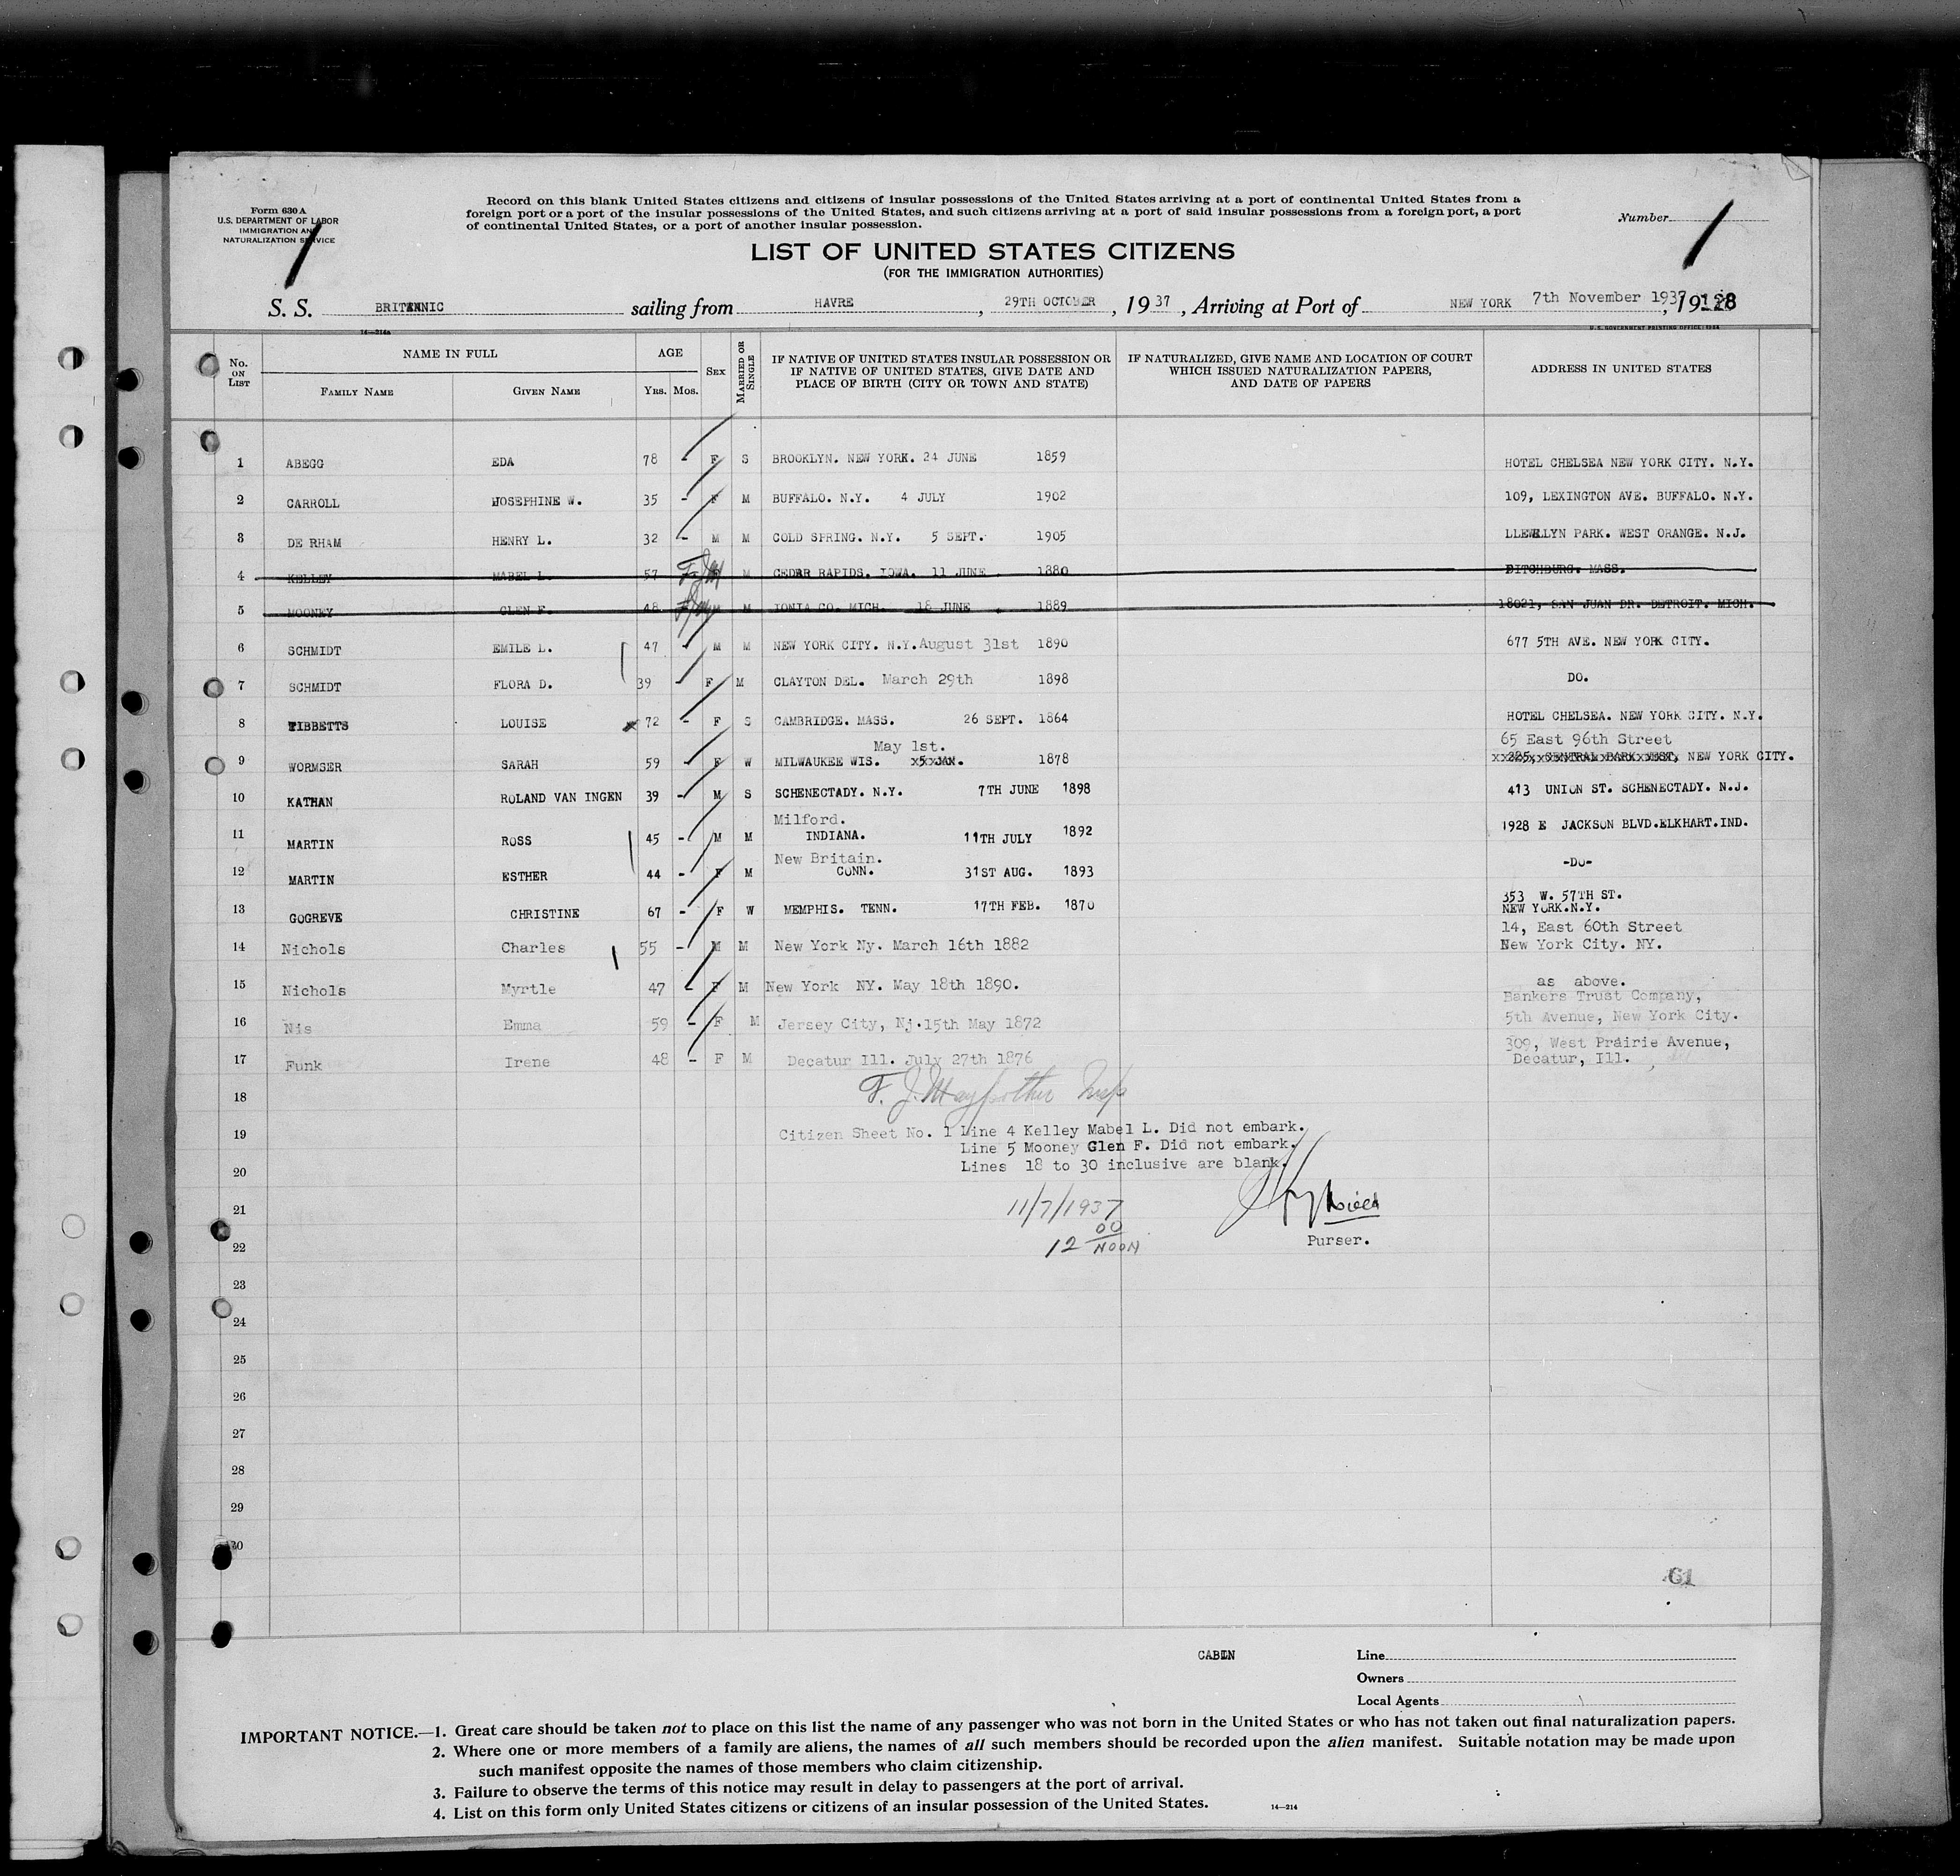 Form 630 A
U.S. DEPARTMENT OF LABOR
IMMIGRATION AND
NATURALIZATION SERVICE
Record on this blank United States citizens and citizens of insular possessions of the United States arriving at a port of continental United States from a
foreign port or a port of the insular possessions of the United States, and such citizens arriving at a port of said insular possessions from a foreign port, a port
of continental United States, or a port of another insular possession.
Number 1
LIST OF UNITED STATES CITIZENS
(FOR THE IMMIGRATION AUTHORITIES)
S. S. BRITANNIC sailing from HAVRE, 29TH OCTOBER, 1937, Arriving at Port of NEW YORK 7th November 1937, 19
14—214a
U.S. GOVERNMENT PRINTING OFFICE: 1934
No. ON LIST
NAME IN FULL
FAMILY NAME GIVEN NAME
AGE
YRS. MOS.
SEX
MARRIED OR SINGLE
IF NATIVE OF UNITED STATES INSULAR POSSESSION OR
IF NATIVE OF UNITED STATES, GIVE DATE AND
PLACE OF BIRTH (CITY OR TOWN AND STATE)
IF NATURALIZED, GIVE NAME AND LOCATION OF COURT
WHICH ISSUED NATURALIZATION PAPERS,
AND DATE OF PAPERS
ADDRESS IN UNITED STATES
1 ABEGG EDA 78 - F S BROOKLYN. NEW YORK. 24 JUNE 1859 HOTEL CHELSEA NEW YORK CITY. N.Y.
2 CARROLL JOSEPHINE W. 35 - F M BUFFALO. N.Y. 4 JULY 1902 109, LEXINGTON AVE. BUFFALO. N.Y.
3 DE RHAM HENRY L. 32 - M M COLD SPRING. N.Y. 5 SEPT. 1905 LLEWLLYN PARK. WEST ORANGE. N.J.
4 KELLEY MABEL L. 57 F M CEDAR RAPIDS. IOWA. 11 JUNE 1880 DITCHBURG. MASS.
5 MOONEY GLEN F. 48 M M IONIA CO. MICH. 18 JUNE 1889 18021, SAN JUAN DR. DETROIT. MICH.
6 SCHMIDT EMILE L. 47 - M M NEW YORK CITY. N.Y. August 31st 1890 677 5TH AVE. NEW YORK CITY.
7 SCHMIDT FLORA D. 39 - F M CLAYTON DEL. March 29th 1898 DO.
8 TIBBETTS LOUISE 72 - F S CAMBRIDGE. MASS. 26 SEPT. 1864 HOTEL CHELSEA. NEW YORK CITY. N.Y.
May 1st. 65 East 96th Street
9 WORMSER SARAH 59 - F W MILWAUKEE WIS. x5xJAN. 1878 325, CENTRAL PARK WEST, NEW YORK CITY.
10 KATHAN ROLAND VAN INGEN 39 - M S SCHENECTADY. N.Y. 7TH JUNE 1898 413 UNION ST. SCHENECTADY. N.J.
Milford.
11 MARTIN ROSS 45 - M M INDIANA. 11TH JULY 1892 1928 E JACKSON BLVD.ELKHART.IND.
New Britain.
12 MARTIN ESTHER 44 - F M CONN. 31ST AUG. 1893 -DO-
13 GOGREVE CHRISTINE 67 - F W MEMPHIS. TENN. 17TH FEB. 1870 353 W. 57TH ST.
NEW YORK.N.Y.
14 Nichols Charles 55 - M M New York Ny. March 16th 1882 14, East 60th Street
New York City. NY.
15 Nichols Myrtle 47 - F M New York NY. May 18th 1890. as above.
Bankers Trust Company,
16 Nis Emma 59 - F M Jersey City, Nj.15th May 1872 5th Avenue, New York City.
17 Funk Irene 48 - F M Decatur Ill. July 27th 1876 309, West Prairie Avenue,
Decatur, Ill.
18
19 Citizen Sheet No. 1 Line 4 Kelley Mabel L. Did not embark.
Line 5 Mooney Glen F. Did not embark.
20 Lines 18 to 30 inclusive are blank.
21 11/7/1937
22 12 00 NOON
Purser.
23
24
25
26
27
28
29
30
61
CABIN
Line
Owners
Local Agents
IMPORTANT NOTICE.—1. Great care should be taken not to place on this list the name of any passenger who was not born in the United States or who has not taken out final naturalization papers.
2. Where one or more members of a family are aliens, the names of all such members should be recorded upon the alien manifest. Suitable notation may be made upon
such manifest opposite the names of those members who claim citizenship.
3. Failure to observe the terms of this notice may result in delay to passengers at the port of arrival.
4. List on this form only United States citizens or citizens of an insular possession of the United States.
14—214